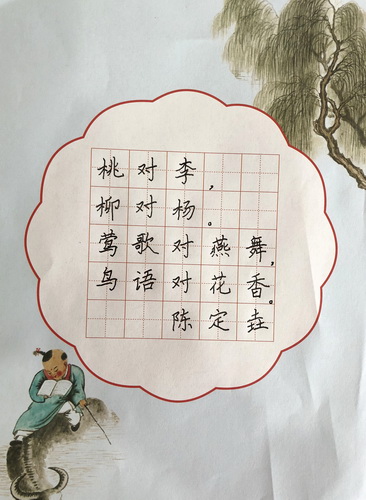 桃对李，
柳对杨。
莺歌对燕舞，
鸟语对花香。
陈定垚